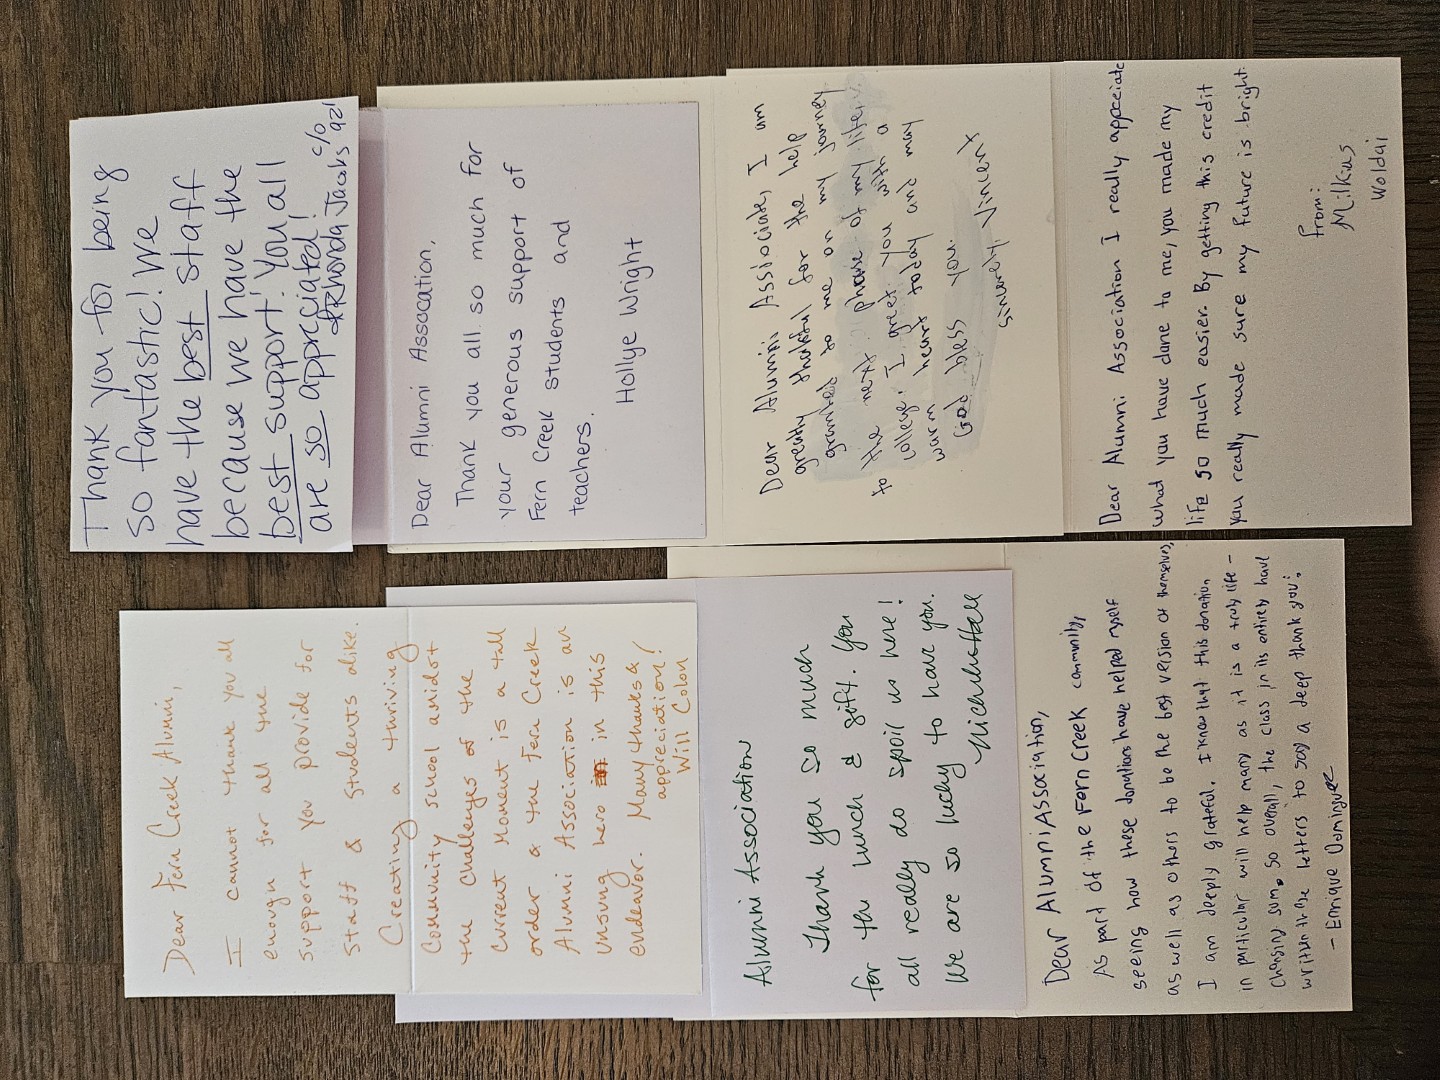 Dear Fern Creek Alumni,
I cannot thank you all
enough for all the
support you provide for
staff & students alike.
Creating a thriving
community school amidst
the challenges of the
current moment is a tall
order & the Fern Creek
Alumni Association is an
unsung hero in this
endeavor. Many thanks &
appreciation!
Will Colon
Alumni Association
Thank you so much
for the lunch & gift. You
all really do spoil us here!
We are so lucky to have you.
Dear Alumni Association,
As part of the Fern Creek community,
seeing how these donations have helped myself
as well as others to be the best version of themselves,
I am deeply grateful. I know that this donation
in particular will help many as it is a truly life-
changing sum. So overall, the class in its entirety have
written these letters to say a deep thank you.
- Enrique Dominguez
Thank you for being
so fantastic! We
have the best staff
because we have the
best support! You all
are so appreciated!
Rhonda Jacobs c/o '92!
Dear Alumni Assocation,
Thank you all so much for
your generous support of
Fern Creek students and
teachers.
Hollye Wright
Dear Alumni Associate, I am
greatly thankful for the help
granted to me on my journey
to the next phase of my life
college. I greet you with a
warm heart today and may
God bless you.
Sincerely, Vincent
Dear Alumni Association I really appreciate
what you have done to me, you made my
life so much easier. By getting this credit
you really made sure my future is bright.
from:
Milkias
Woldai